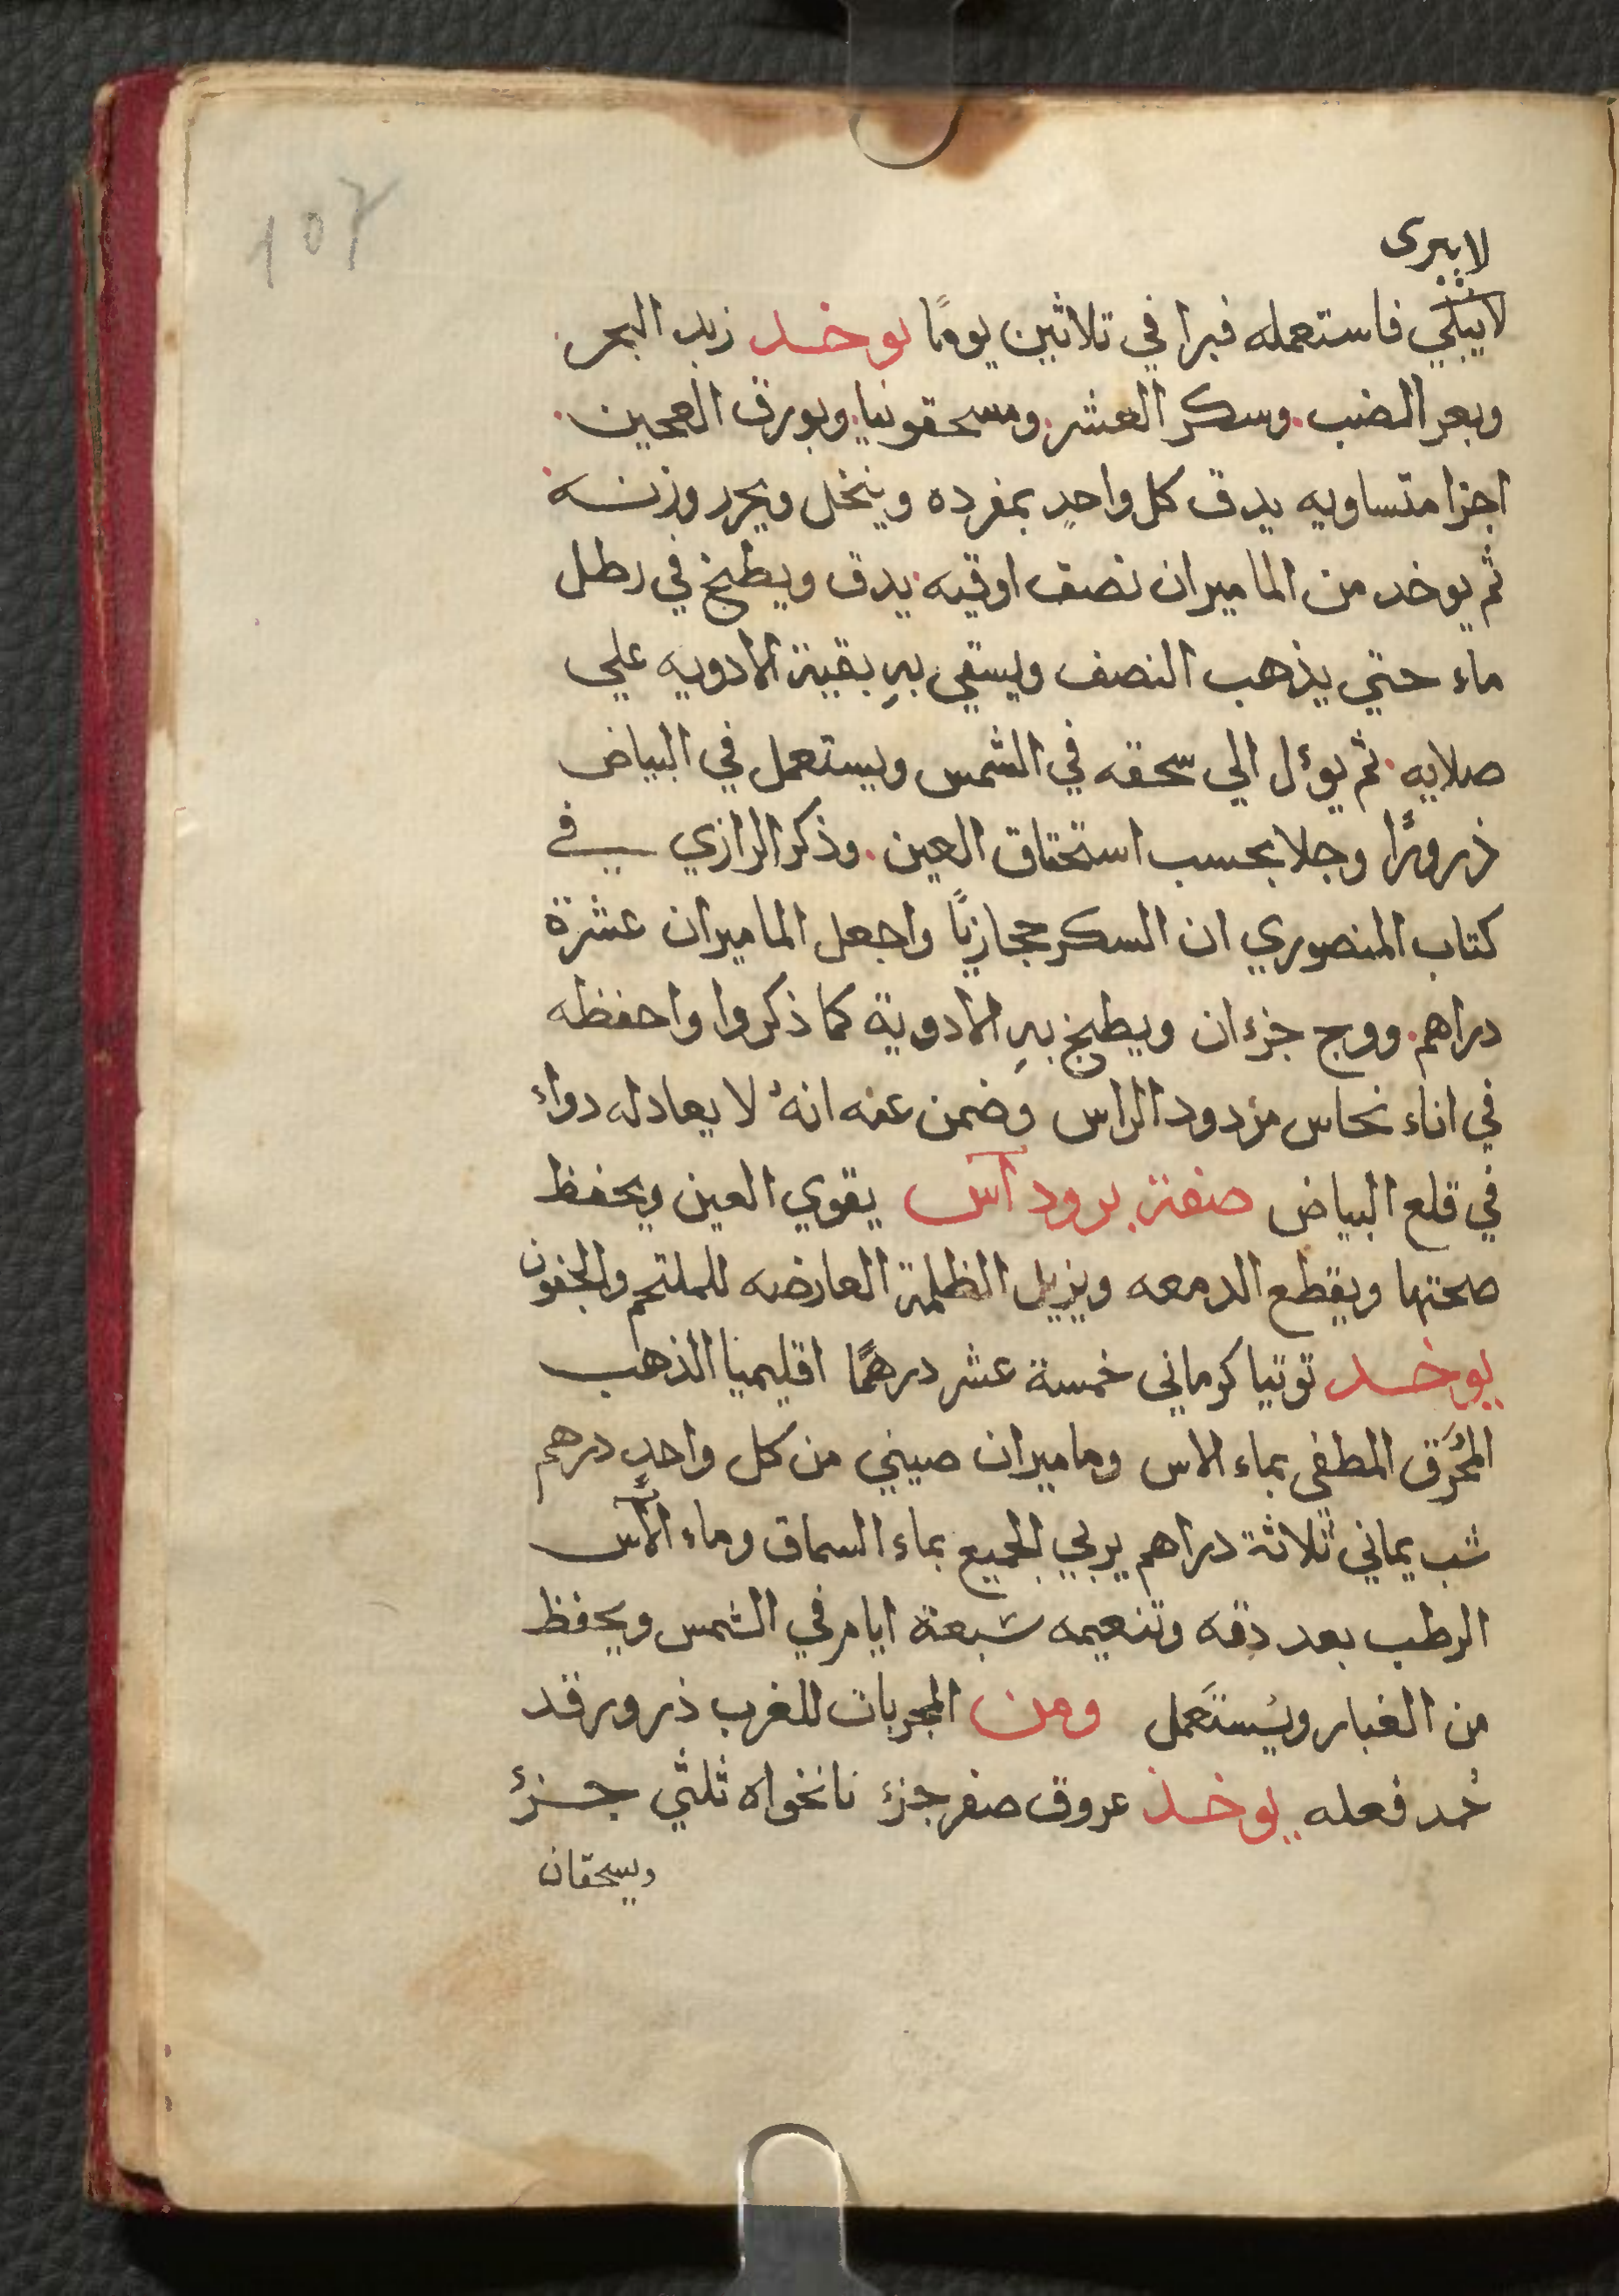 107
لا يبرى
لا يبلي فاستعمله فبرا في تلاثين يومًا يوخد زبد البحر
وبعر الضب وسكر العشر ومسحقونيا وبورق العجين
اجزا متساويه يدق كل واحدٍ بمفرده وينخل ويحرر وزنه
ثم يوخد من الماميران نصف اوقيه يدق ويطبخ في رطل
ماء حتي يذهب النصف ويسقي بهِ بقية الادويه علي
صلايه ثم يوءل الي سحقه في الشمس ويستعمل في البياض
ذرورًا وجلا بحسب استحقاق العين وذكر الرازي في
كتاب المنصوري ان السكر حجازيًا واجعل الماميران عشرة
دراهم ووج جزءان ويطبخ بهِ الادوية كما ذكروا واحفظه
في اناء نحاس مزدود الراس وضمن عنه انهُ لا يعادله دواء
في قلع البياض صفة برود آس يقوي العين ويحفظ
صحتها ويقطع الدمعه ويزيل الظلمة العارضه للملتحم والجفون
يوخد توتيا كرماني خمسة عشر درهمًا اقليميا الذهب
المحَرَق المطفي بماء الاس وماميران صيني من كل واحدٍ درهم
شب يماني ثلاثة دراهم يربي الجميع بماء السماق وماء الآس
الرطب بعد دقه وتنعيمه سبعة ايام في الشمس ويحفظ
من الغبار ويُستَعمل ومن المجربات للغرب ذرور قد
حُمد فعله يوخذ عروق صفر جزء نانخواه ثلثي جزء
ويسحقان